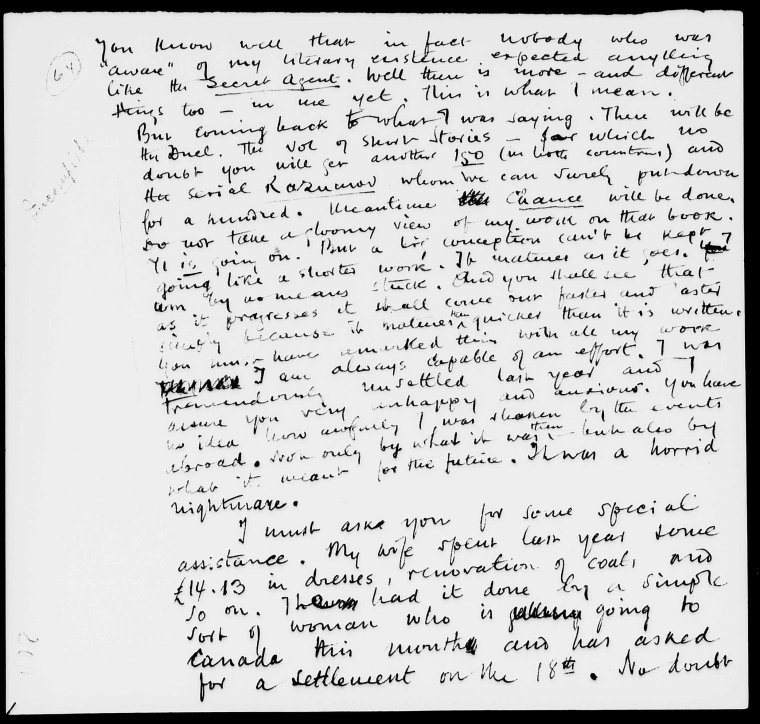 64
You know well that in fact nobody who was
"aware" of my literary existence expected anything
like the Secret Agent. Well there is more – and different
things too – in me yet. This is what I mean.
But coming back to what I was saying. There will be
the Duel. The vol of short stories – for which no
doubt you will get another 150 (in both countries) and
the serial Razumov whom we can surely put down
for a hundred. Meantime Chance will be done.
Do not take a gloomy view of my work on that book.
It is going on. But a big conception can't be kept
going like a shorter work. It matures as it goes. I
am by no means stuck. And you shall see that
as it progresses it shall come out faster and faster
simply because it matures then quicker than it is written.
You must have remarked this with all my work
I am always capable of an effort. I was
tremendously unsettled last year and I
assure you very unhappy and anxious. You have
no idea how awfully I was shaken by the events
abroad. Not only by what it was then – but also by
what it meant for the future. It was a horrid
nightmare.
I must ask you for some special
assistance. My wife spent last year some
£14.13 in dresses, renovation of coats and
so on. She had it done by a simple
sort of woman who is going to
Canada this month and has asked
for a settlement on the 18th. No doubt